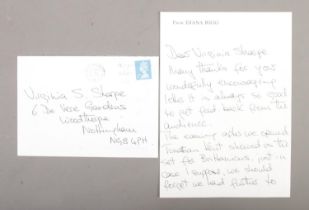 Virginia S. Sharpe
6 De Vere Gardens
Woodthorpe
Nottingham
NG5 4PH
From DIANA RIGG
Dear Virginia Sharpe
Many thanks for your
wonderfully encouraging
letter it is always so good
to get feed back from the
audience.
The evening after we opened
Jonathan Kent showed us the
set for Britannicus, just in
case I suppose, we should
forget we had further to